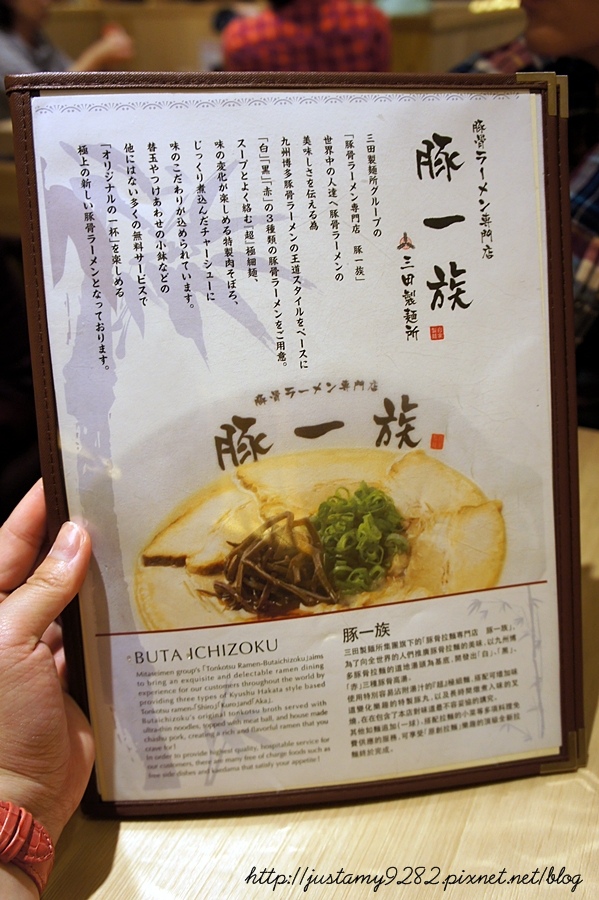 豚骨ラーメン専門店
豚一族
三田製麺所
三田製麺所グループの
「豚骨ラーメン専門店　豚一族」
世界中の人達へ豚骨ラーメンの
美味しさを伝える為
九州博多豚骨ラーメンの王道スタイルをベースに
「白」「黒」「赤」の3種類の豚骨ラーメンをご用意。
スープとよく絡む『超』極細麺、
味の変化が楽しめる特製肉そぼろ、
じっくり煮込んだチャーシューに
味のこだわりが込められています。
替玉やつけあわせの小鉢などの
他にはない多くの無料サービスで
「オリジナルの一杯」を楽しめる
極上の新しい豚骨ラーメンとなっております。
豚骨ラーメン専門店
豚一族
BUTA-ICHIZOKU
Mitaseimen group's「Tonkotsu Ramen-Butaichizoku」aims
to bring an exquisite and delectable ramen dining
experience for our customers throughout the world by
providing three types of Kyushu Hakata style based
Tonkotsu ramen「Shiro」「Kuro」and「Aka」.
Butaichizoku's original tonkotsu broth served with
ultra-thin noodles, topped with meat ball, and house made
chashu pork, creating a rich and flavorful ramen that you
crave for!
In order to provide highest quality, hospitable service for
our customers, there are many free of charge foods such as
free side dishes and kaedama that satisfy your appetite!
豚一族
三田製麺所集團旗下的「豚骨拉麵專門店　豚一族」、
為了向全世界的人們推廣豚骨拉麵的美味、以九州博
多豚骨拉麵的道地湯頭為基底、開發出「白」、「黑」、
「赤」三種豚骨底湯。
使用特別容易沾附湯汁的『超』極細麵、搭配可增加味
道變化樂趣的特製豚丸、以及長時間燉煮入味的叉
燒、在在包含了本店對味道最不容妥協的講究。
其他如麵追加(一球)、搭配拉麵的小菜等多項料理免
費供應的服務、可享受「原創拉麵」樂趣的頂級全新拉
麵終於完成。
http://justamy9282.pixnet.net/blog